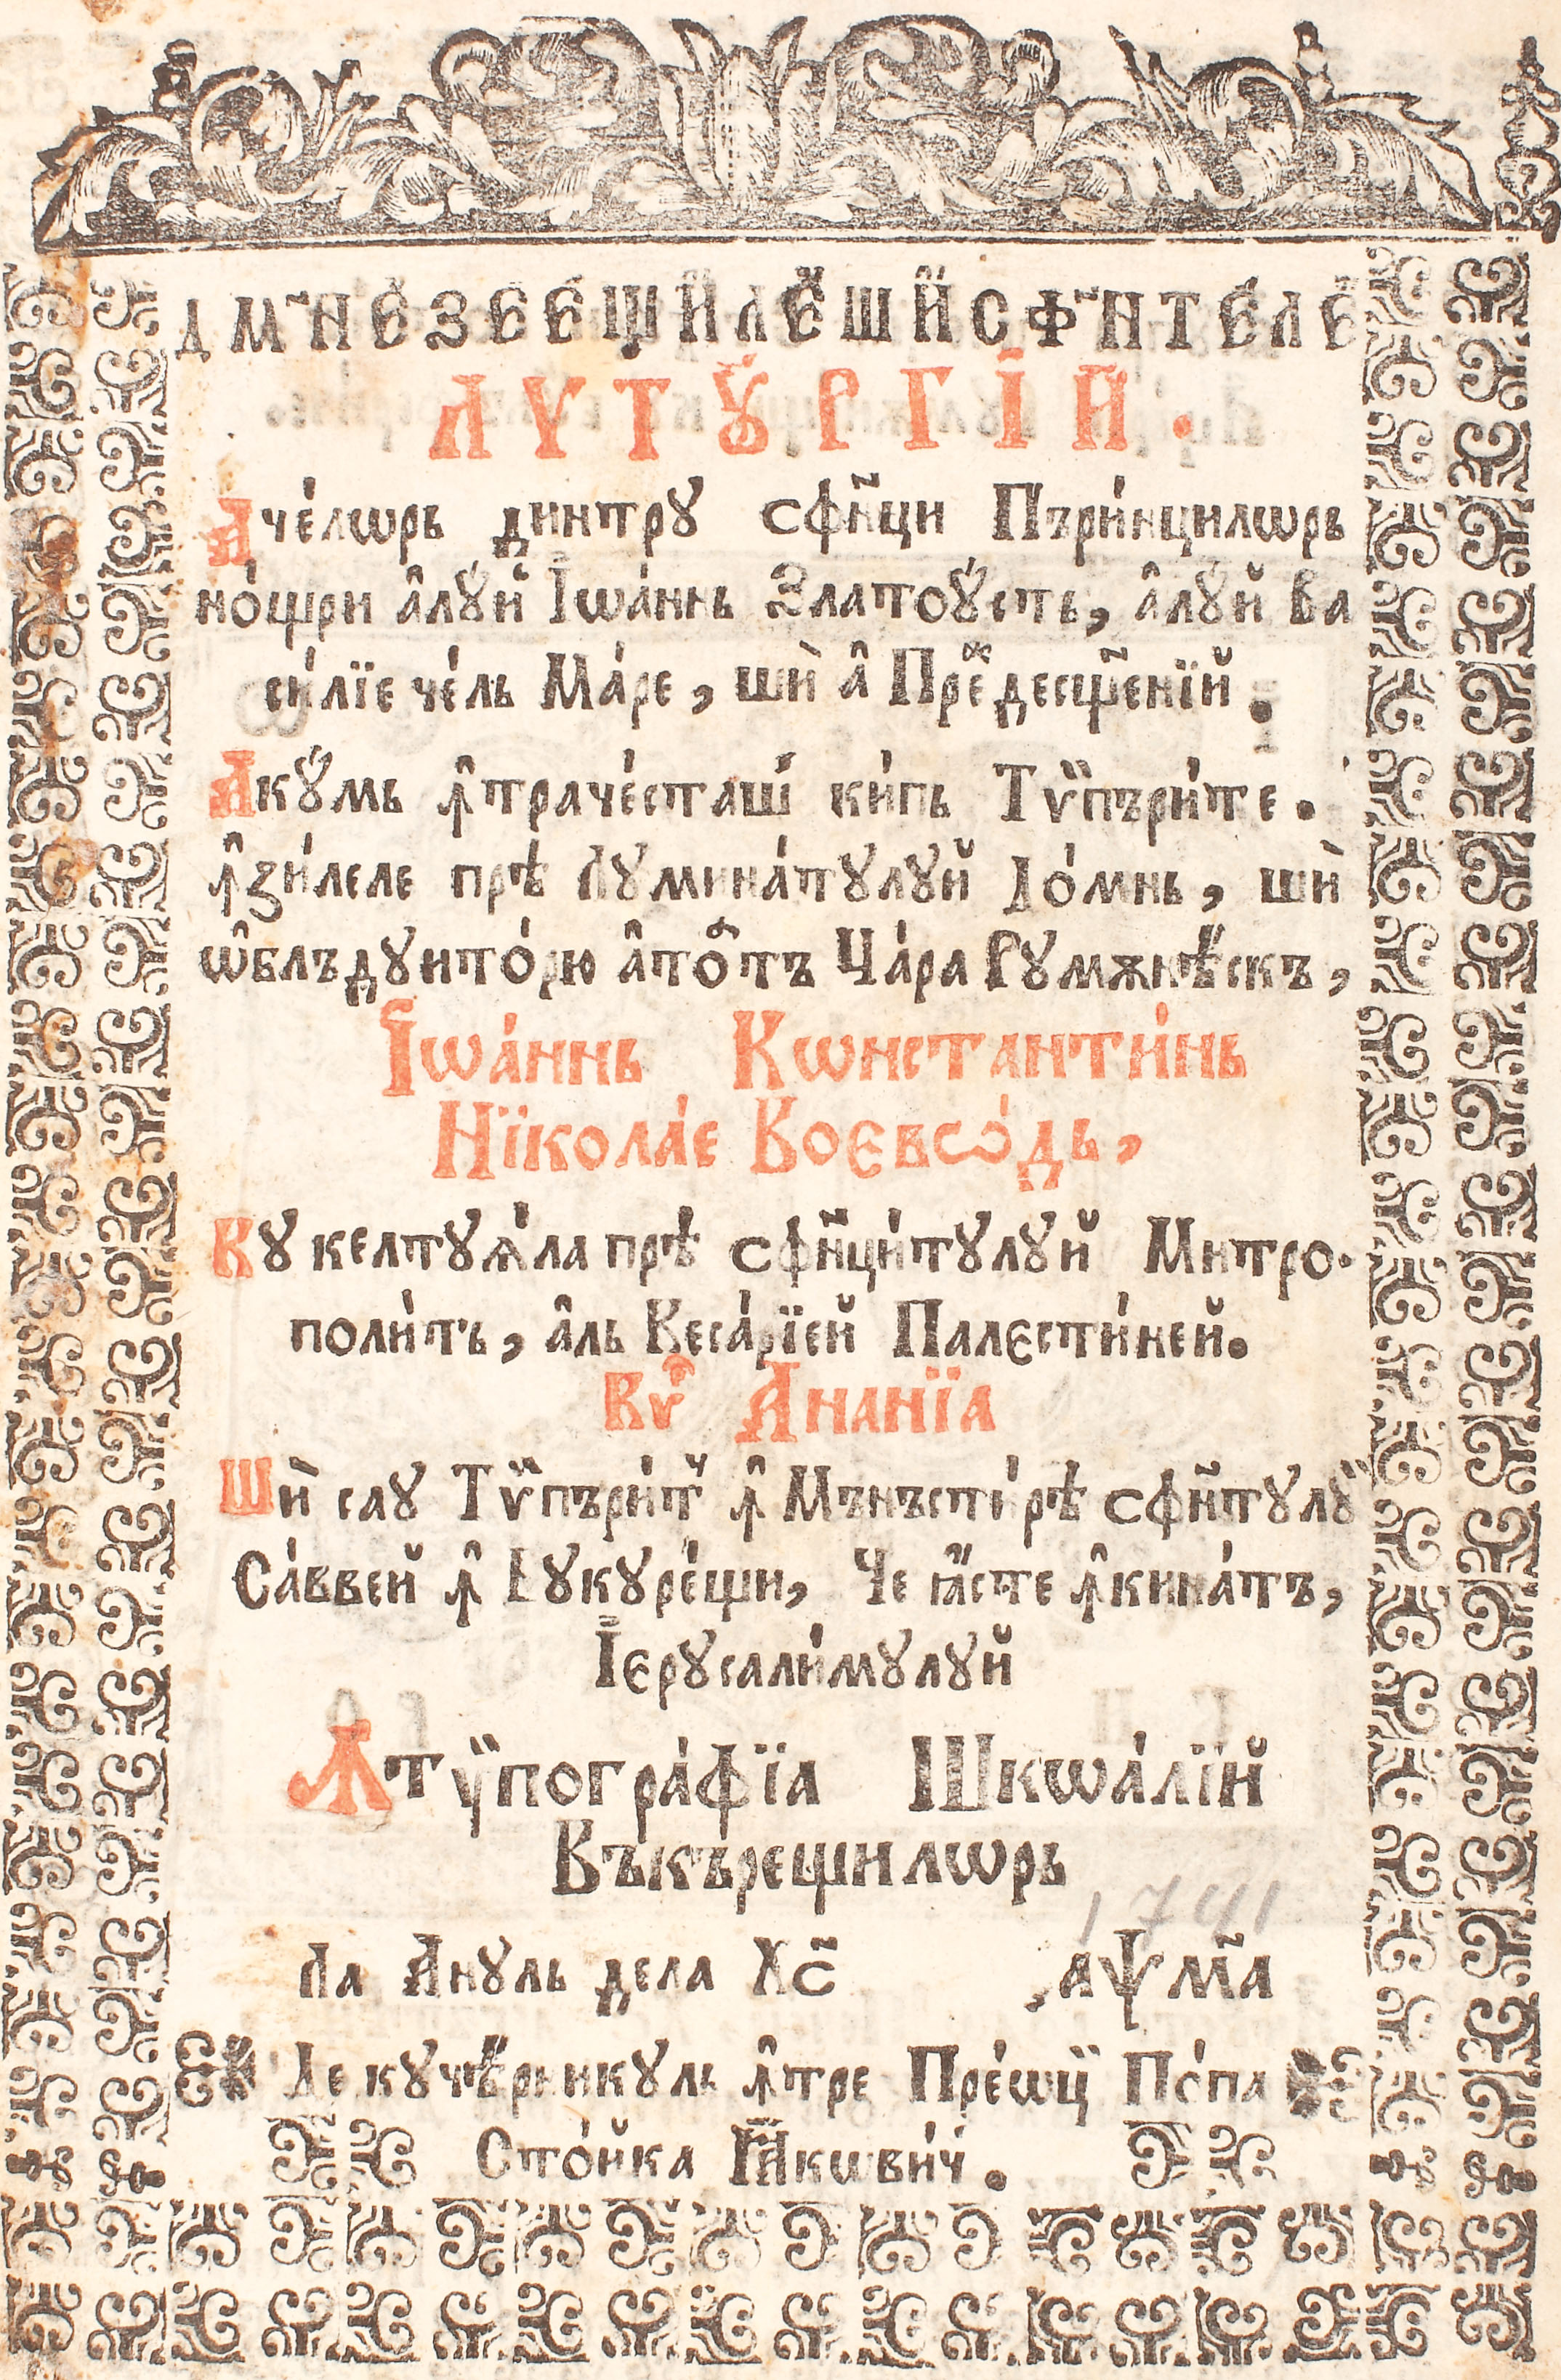 Дм҃незеещиле шисф҃нтеле
ЛѴТꙊРГІ́Й.
Аче́лѡрь динтрꙋ сфн҃ци Пъри́нцилѡрь
но́щри а҆лꙋй Іѡа́ннь Златоꙋсть, а҆лꙋй Ва
си́лїе че́ль Ма́ре, шѝ а҆ Преждесщ҃енїй.
Акꙋмь ꙟ҆траче́сташ ки́пь Тѵпъри́те.
ꙟ҆зи́леле прѣ Лꙋмина́тꙋлꙋй До́мнь, шѝ
ѡ҆блъдꙋито́рю а҆то́тъ Ца́ра Рꙋмѫнѣ́скъ,
Іѡа́ннь Кѡнстанти́нь
Нїкола́е Воєвѡ́дь,
Кꙋ келтꙋѧ́ла прѣ сфн҃ци́тꙋлꙋй Митро-
поли́ть, а҆ль Кеса́рїей Палєсти́ней.
Кѵ҆ Ананїа
Шѝ саꙋ Тѵпъри́т ꙟ҆ Мънъсти́рѣ сфн҃тꙋлꙋ
Са́ввей ꙟ҆ Бꙋкꙋре́щи, Че ꙗ҆сте ꙟ҆кина́тъ,
Їєрꙋсали́мꙋлꙋй
Ꙟтѵпогра́фїа Шкѡа́лїй
Въкърещилѡрь
Ла Анꙋль дела Хс҃ ҂аѱм҃а
1741
Де кꙋчѣ́рникꙋль ꙟ҆тре Пре́ѡцї По́па
Сто́йка Ꙗ҆кѡви́ч.